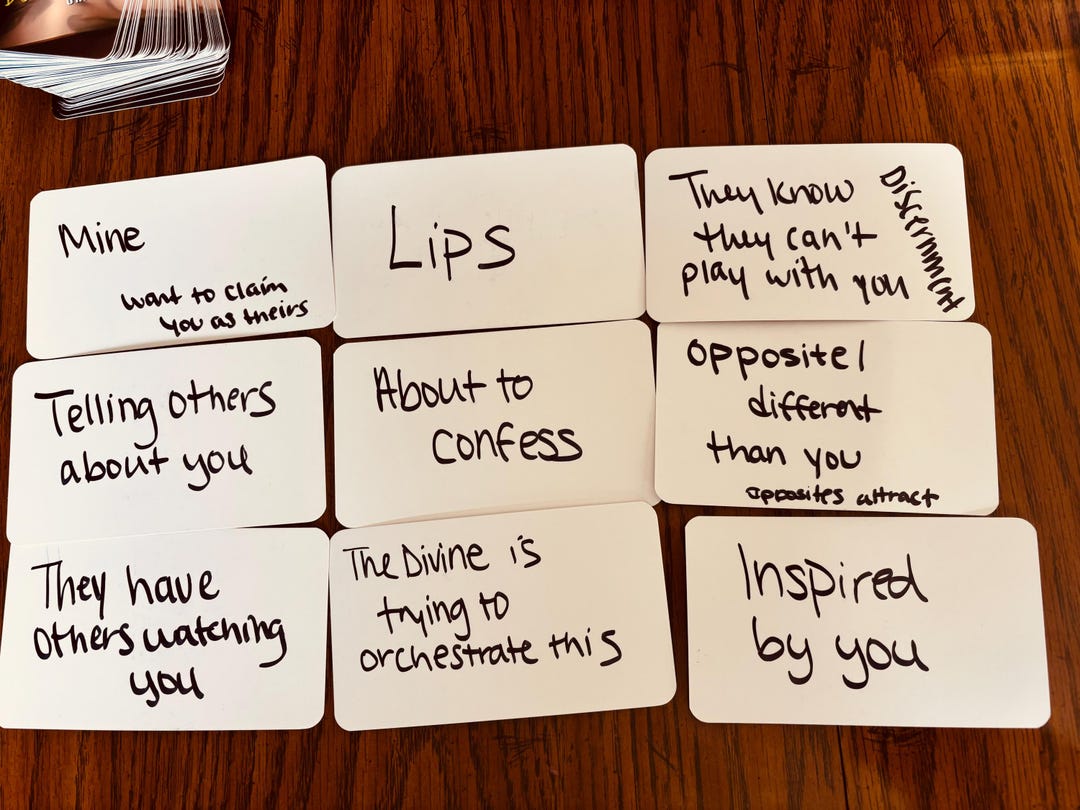 Mine
want to claim
you as theirs
Lips
They know
they can't
play with you
Discernment
Telling others
about you
About to
confess
opposite/
different
than you
opposites attract
They have
others watching
you
The Divine is
trying to
orchestrate this
Inspired
by you